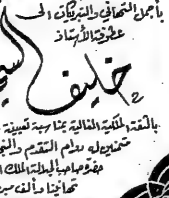 بأجمل التهاني والتبريكات الى
عطوفة الأستاذ
خليف
بالثقة الملكية الغالية بمناسبة تعيينه
متمنين له دوام التقدم
حضرة صاحب الجلالة الملك
تهانينا وألف